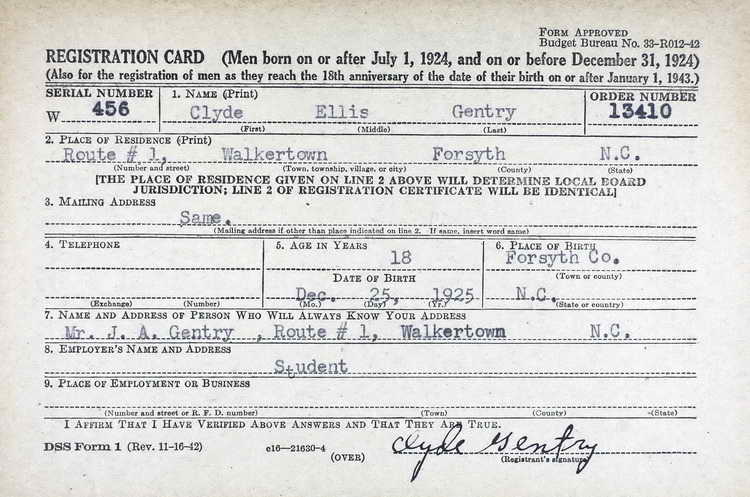 FORM APPROVED
Budget Bureau No. 33-R012-42
REGISTRATION CARD (Men born on or after July 1, 1924, and on or before December 31, 1924)
(Also for the registration of men as they reach the 18th anniversary of the date of their birth on or after January 1, 1943.)
SERIAL NUMBER 1. NAME (Print) ORDER NUMBER
W 456 Clyde Ellis Gentry 13410
(First) (Middle) (Last)
2. PLACE OF RESIDENCE (Print)
Route # 1, Walkertown Forsyth N.C.
(Number and street) (Town, township, village, or city) (County) (State)
[THE PLACE OF RESIDENCE GIVEN ON LINE 2 ABOVE WILL DETERMINE LOCAL BOARD
JURISDICTION; LINE 2 OF REGISTRATION CERTIFICATE WILL BE IDENTICAL]
3. MAILING ADDRESS
Same.
(Mailing address if other than place indicated on line 2. If same, insert word same)
4. TELEPHONE 5. AGE IN YEARS 6. PLACE OF BIRTH
18 Forsyth Co.
DATE OF BIRTH (Town or county)
Dec. 25, 1925 N.C.
(Exchange) (Number) (Mo.) (Day) (Yr.) (State or country)
7. NAME AND ADDRESS OF PERSON WHO WILL ALWAYS KNOW YOUR ADDRESS
Mr. J. A. Gentry , Route # 1, Walkertown N.C.
8. EMPLOYER'S NAME AND ADDRESS
Student
9. PLACE OF EMPLOYMENT OR BUSINESS
(Number and street or R. F. D. number) (Town) (County) (State)
I AFFIRM THAT I HAVE VERIFIED ABOVE ANSWERS AND THAT THEY ARE TRUE.
DSS Form 1 (Rev. 11-16-42) c16—21630-4 Clyde Gentry
(OVER) (Registrant's signature)